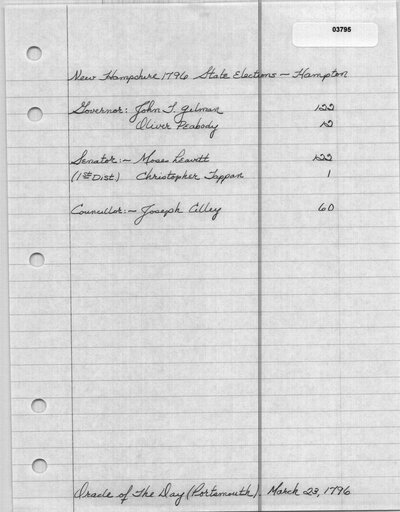 03795
New Hampshire 1796 State Elections - Hampton
Governor: John T. Gilman 122
Oliver Peabody 12
Senator:- Moses Leavitt 122
(1st Dist) Christopher Toppan 1
Councillor:- Joseph Cilley 60
Oracle of The Day (Portsmouth). March 23, 1796